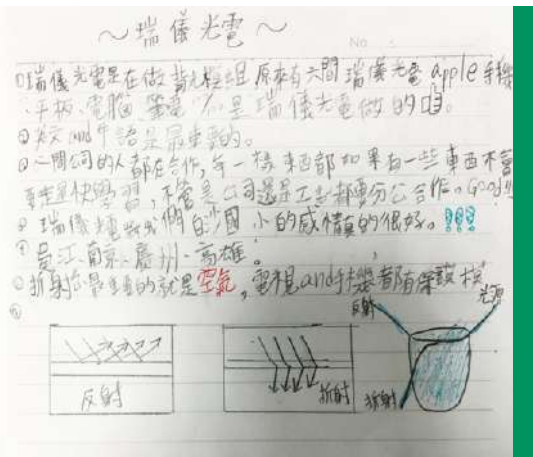 ～瑞儀光電～
No.
①瑞儀光電是在做背光模組 原來有六間 瑞儀光電 apple 手機
平板、電腦、筆電 不是瑞儀光電做的唷。
②英文 and 中語是最重要的。
③一間公司的人都在合作,每一樣東西都如果有一些東西不會
要趕快學習,不管是公司還是工 都要分公合作。Good!!
④ 瑞儀光電 我們白沙國小的感情真的很好。!!!
⑤ 吳江、南京、廣州、高雄。
⑥折射 最重要的就是空氣,電視and手機都有保護模
反射
折射
反射
光源
折射